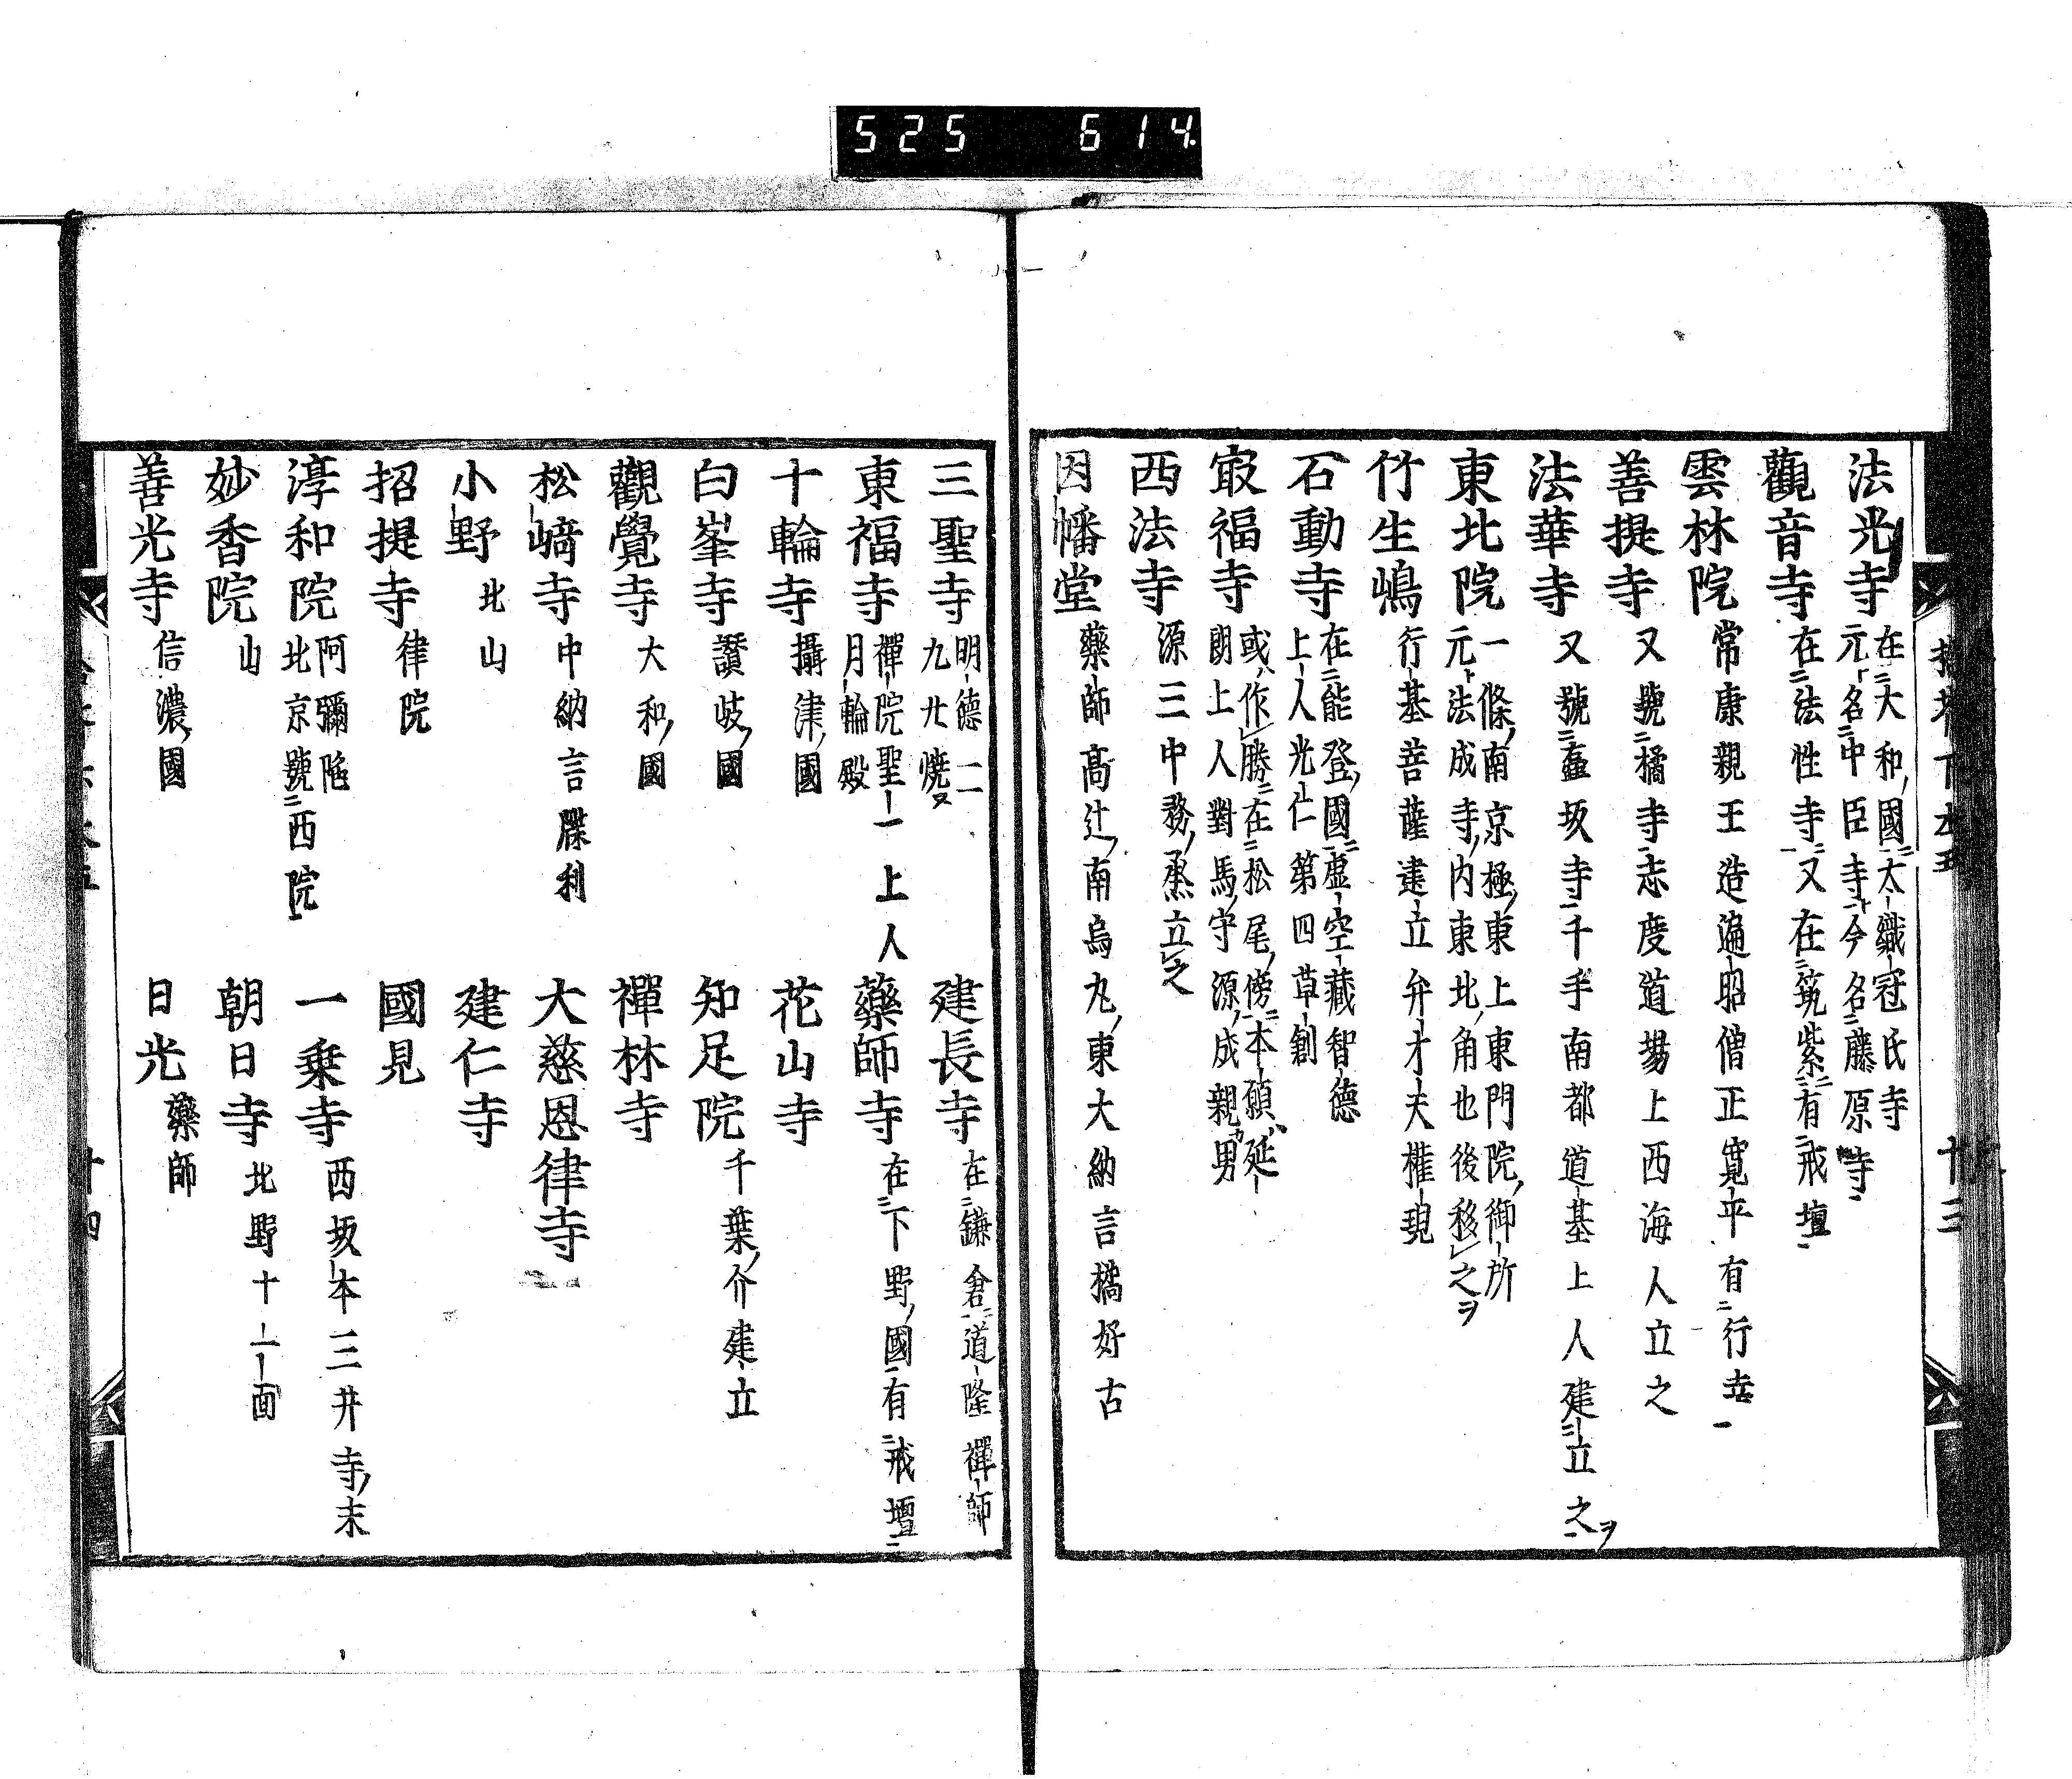 525 614
法光寺 在大和國大織冠氏寺
元名中臣寺今名藤原寺
觀音寺 在法性寺又在筑紫有戒壇
雲林院 常康親王造遍昭僧正寬平有行幸
善提寺 又號橘寺志度道場上西海人立之
法華寺 又號蓝坂寺千手南都道基上人建立之ヲ
東北院 一條南京極東上東門院御所
元法成寺内東北角也後移之ヲ
竹生嶋 行基菩薩建立弁才夫權現
石動寺 在能登國虚空藏智德
上人光仁第四草創
㝡福寺 或作勝在松尾傍本願ハ延
朗上人對馬守源成親カ男
西法寺 源三中務烝立之
因幡堂 藥師高辻南烏丸東大納言橘好古
三聖寺 明德二
九廿燒又
建長寺 在鎌倉道隆禪師
東福寺 禪院聖一上人
月輪殿
藥師寺 在下野國有戒壇
十輪寺 攝津國
花山寺
白峯寺 讃岐國
知足院 千葉介建立
觀覺寺 大和國
禪林寺
松﨑寺 中納言牒利
大慈恩律寺
小野 北山
建仁寺
招提寺 律院
國見
淳和院 阿彌陁
北京號西院
一乗寺 西坂本三井寺末
妙香院 山
朝日寺 北野十一面
善光寺 信濃國
日光 藥師